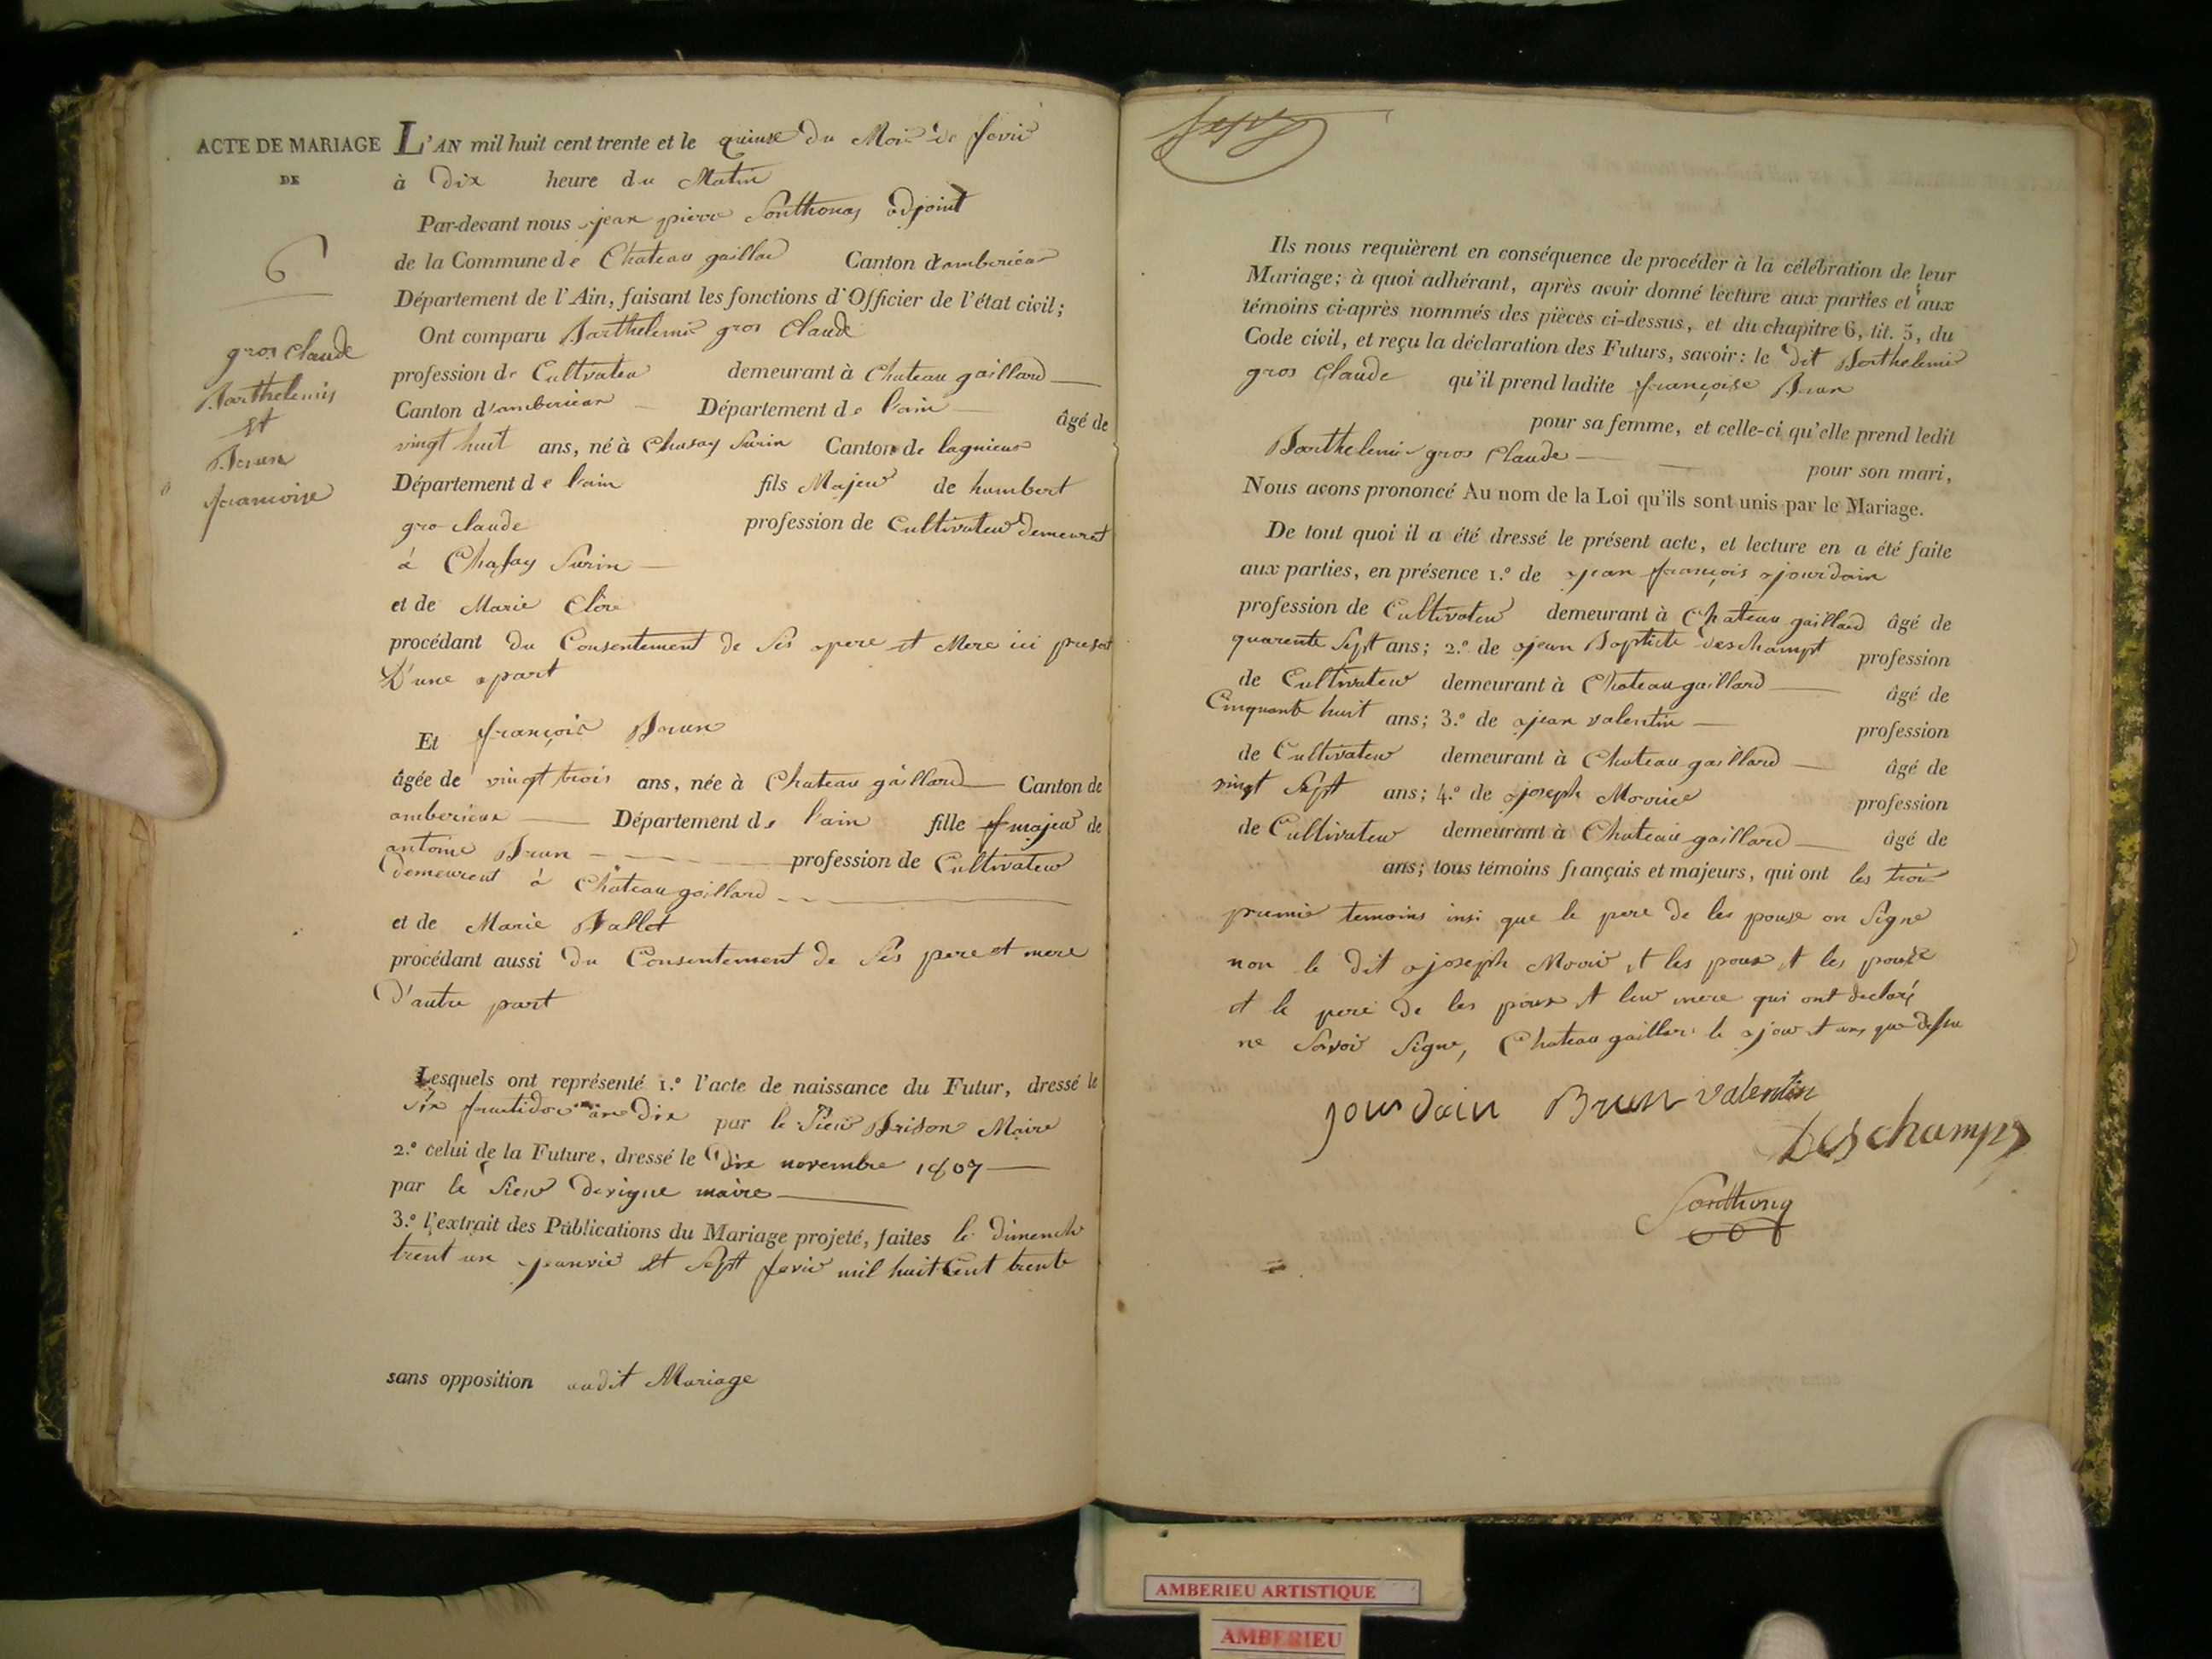 ACTE DE MARIAGE
DE
6
gros Claude
Barthelemis
et
Brun
francoise
L'AN mil huit cent trente et le quinse du Mois de fevrié
à Dix heure du Matin
Par-devant nous jean pierre Sonthonas adjoint
de la Commune de Chateau gaillar Canton d'amberieux
Département de l'Ain, faisant les fonctions d'Officier de l'état civil;
Ont comparu Barthelemie gros Claude
profession de Cultivateu demeurant à Chateau gaillard
Canton d'amberieux Département de l'ain âgé de
vingt huit ans, né à Chasay Surin Canton de lagnieux
Département de l'ain fils Majeur de humbert
gro claude profession de Cultivateur demeurat
à Chasay Surin
et de Marie
procédant du Consentement de Ses pere et Mere ici present
D'une part
Et françoise Brun
âgée de vingt trois ans, née à Chateau gaillard Canton de
amberieux Département de l'ain fille majeur de
antoine Brun profession de Cultivateur
demeurent à Chateau gaillard
et de Marie Ballet
procédant aussi du Consentement de Ses pere et mere
D'autre part
Lesquels ont représenté 1.º l'acte de naissance du Futur, dressé le
Six fructidor an dix par le Sieur Brison Maire
2.º celui de la Future, dressé le dix novembre 1807
par le Sieur Devigne maire
3.º l'extrait des Publications du Mariage projeté, faites le dimench
trent un janvié et Sept fevié mil huit Cent trente
sans opposition audit Mariage
Ils nous requièrent en conséquence de procéder à la célébration de leur
Mariage; à quoi adhérant, après avoir donné lecture aux parties et aux
témoins ci-après nommés des pièces ci-dessus, et du chapitre 6, tit. 5, du
Code civil, et reçu la déclaration des Futurs, savoir: le dit Barthelemie
gros Claude qu'il prend ladite françoise Brun
pour sa femme, et celle-ci qu'elle prend ledit
Barthelemie gros Claude pour son mari,
Nous avons prononcé Au nom de la Loi qu'ils sont unis par le Mariage.
De tout quoi il a été dressé le présent acte, et lecture en a été faite
aux parties, en présence 1.º de jean françois jourdain
profession de Cultivateur demeurant à Chateau gaillard âgé de
quarente Sept ans; 2.º de jean Baptiste deschampt profession
de Cultivateur demeurant à Chateau gaillard âgé de
Cinquante huit ans; 3.º de jean valentin profession
de Cultivateur demeurant à Chateau gaillard âgé de
vingt Sept ans; 4.º de joseph profession
de Cultivateur demeurant à Chateau gaillard âgé de
ans; tous témoins français et majeurs, qui ont les trois
premie temoins insi que le pere de les pouse on Signe
non le dit joseph et les poux et les pouse
et le pere de les poux et leur mere qui ont declaré
ne Savoir Signe, Chateau gaillar le jour et ans que dessu
jourdain Brun valentin
Deschamps
Sonthonas
AMBERIEU ARTISTIQUE
AMBERIEU